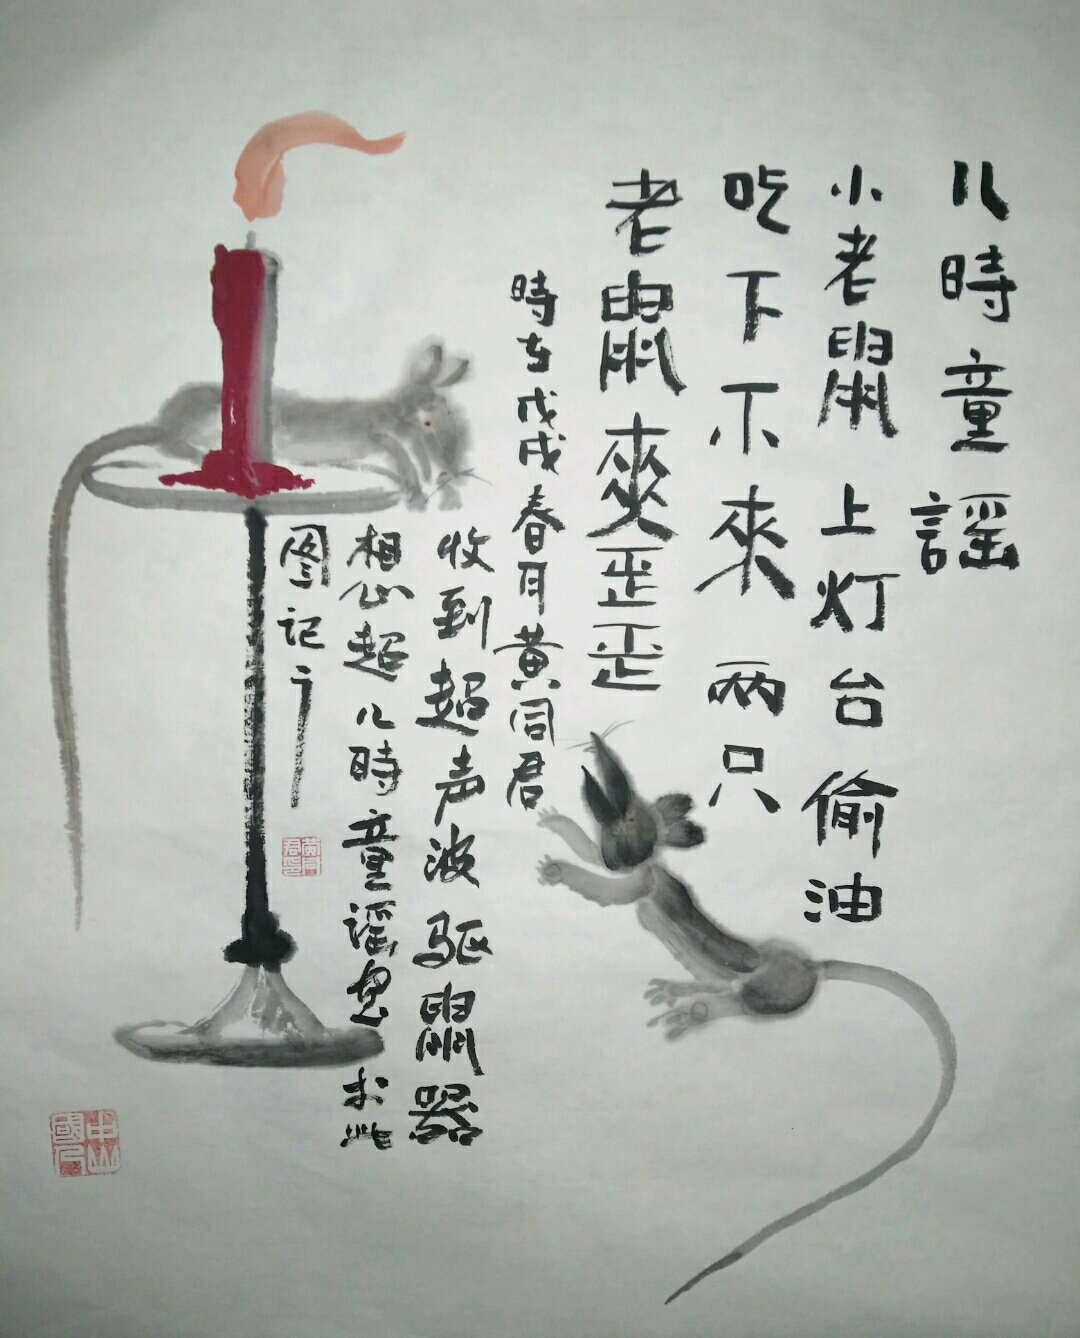 儿時童謡
小老鼠上灯台偷油
吃下不來两只
老鼠爽歪歪
時在戊戌春月黄同君
收到超声波驱鼠器
想起儿時童謡 此
图记之
黄同君印